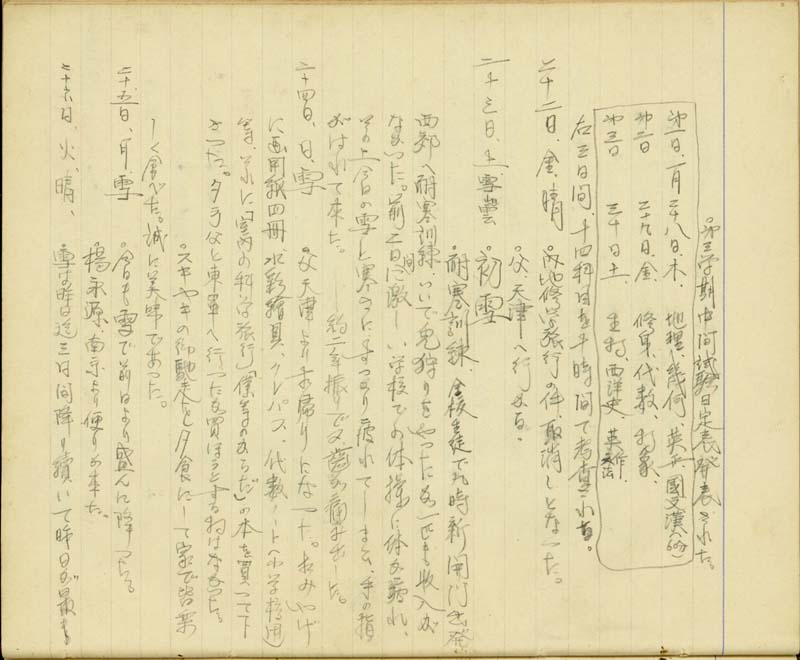 第三学期中間試験日定表発表された。
第一日、一月二十八日、木、地理、幾何、英、國文漢
第二日 二十九日、金、修身、代数、物象、
第三日 三十日、土、生物、西洋史、英作文法
右三日間、十四科目を十時間で考査される。
二十二日、金、晴 内地修学旅行の件、取消しとなった。
父、天津へ行かる。
二十三日、土、雪曇 初雪
耐寒訓練、全校生徒で九時新開門出発
西郊へ耐寒訓練 いいて兎狩りをやったが一匹も收入が
なかった。前二日間激しい学校での体操に体が疲れ、
その上今日の雪と寒さにすっかり疲れてしまひ、手の指
がはれて来た。 約二年振りで又歯が痛み出した。
二十四日、日、雪 父天津よりお帰りになった。おみやげ
に画用紙四冊、水彩繪具、クレパス、代数ノート、小学校用
等、それに「室内の科学旅行」「僕等のからだ」の本を買って下
さった。夕方父と東單へ行ったが買ほうとする物はなかった。
スキヤキの御馳走を夕食にして家で皆楽
しく食べた。誠に美味であった。
二十五日、月、雪 今日も雪で前日より盛んに降った。
楊永源、南京より便りが来た。
二十六日、火、晴、 雪は昨日迄三日間降り續いて昨日が最も